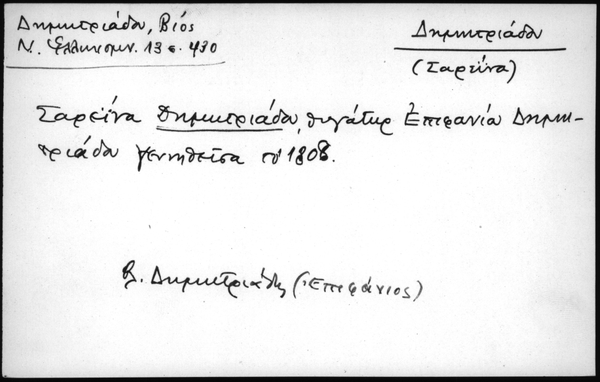 Δημητριάδου, Βίος
Ν. Ἑλληνομν. 13 σ. 430
Δημητριάδου
(Σαρεΐνα)
Σαρεΐνα Δημητριάδου, θυγάτηρ Ἐπιφανίου Δημη-
τριάδου γεννηθεῖσα τῷ 1808.
βλ. Δημητριάδης (Ἐπιφάνιος)